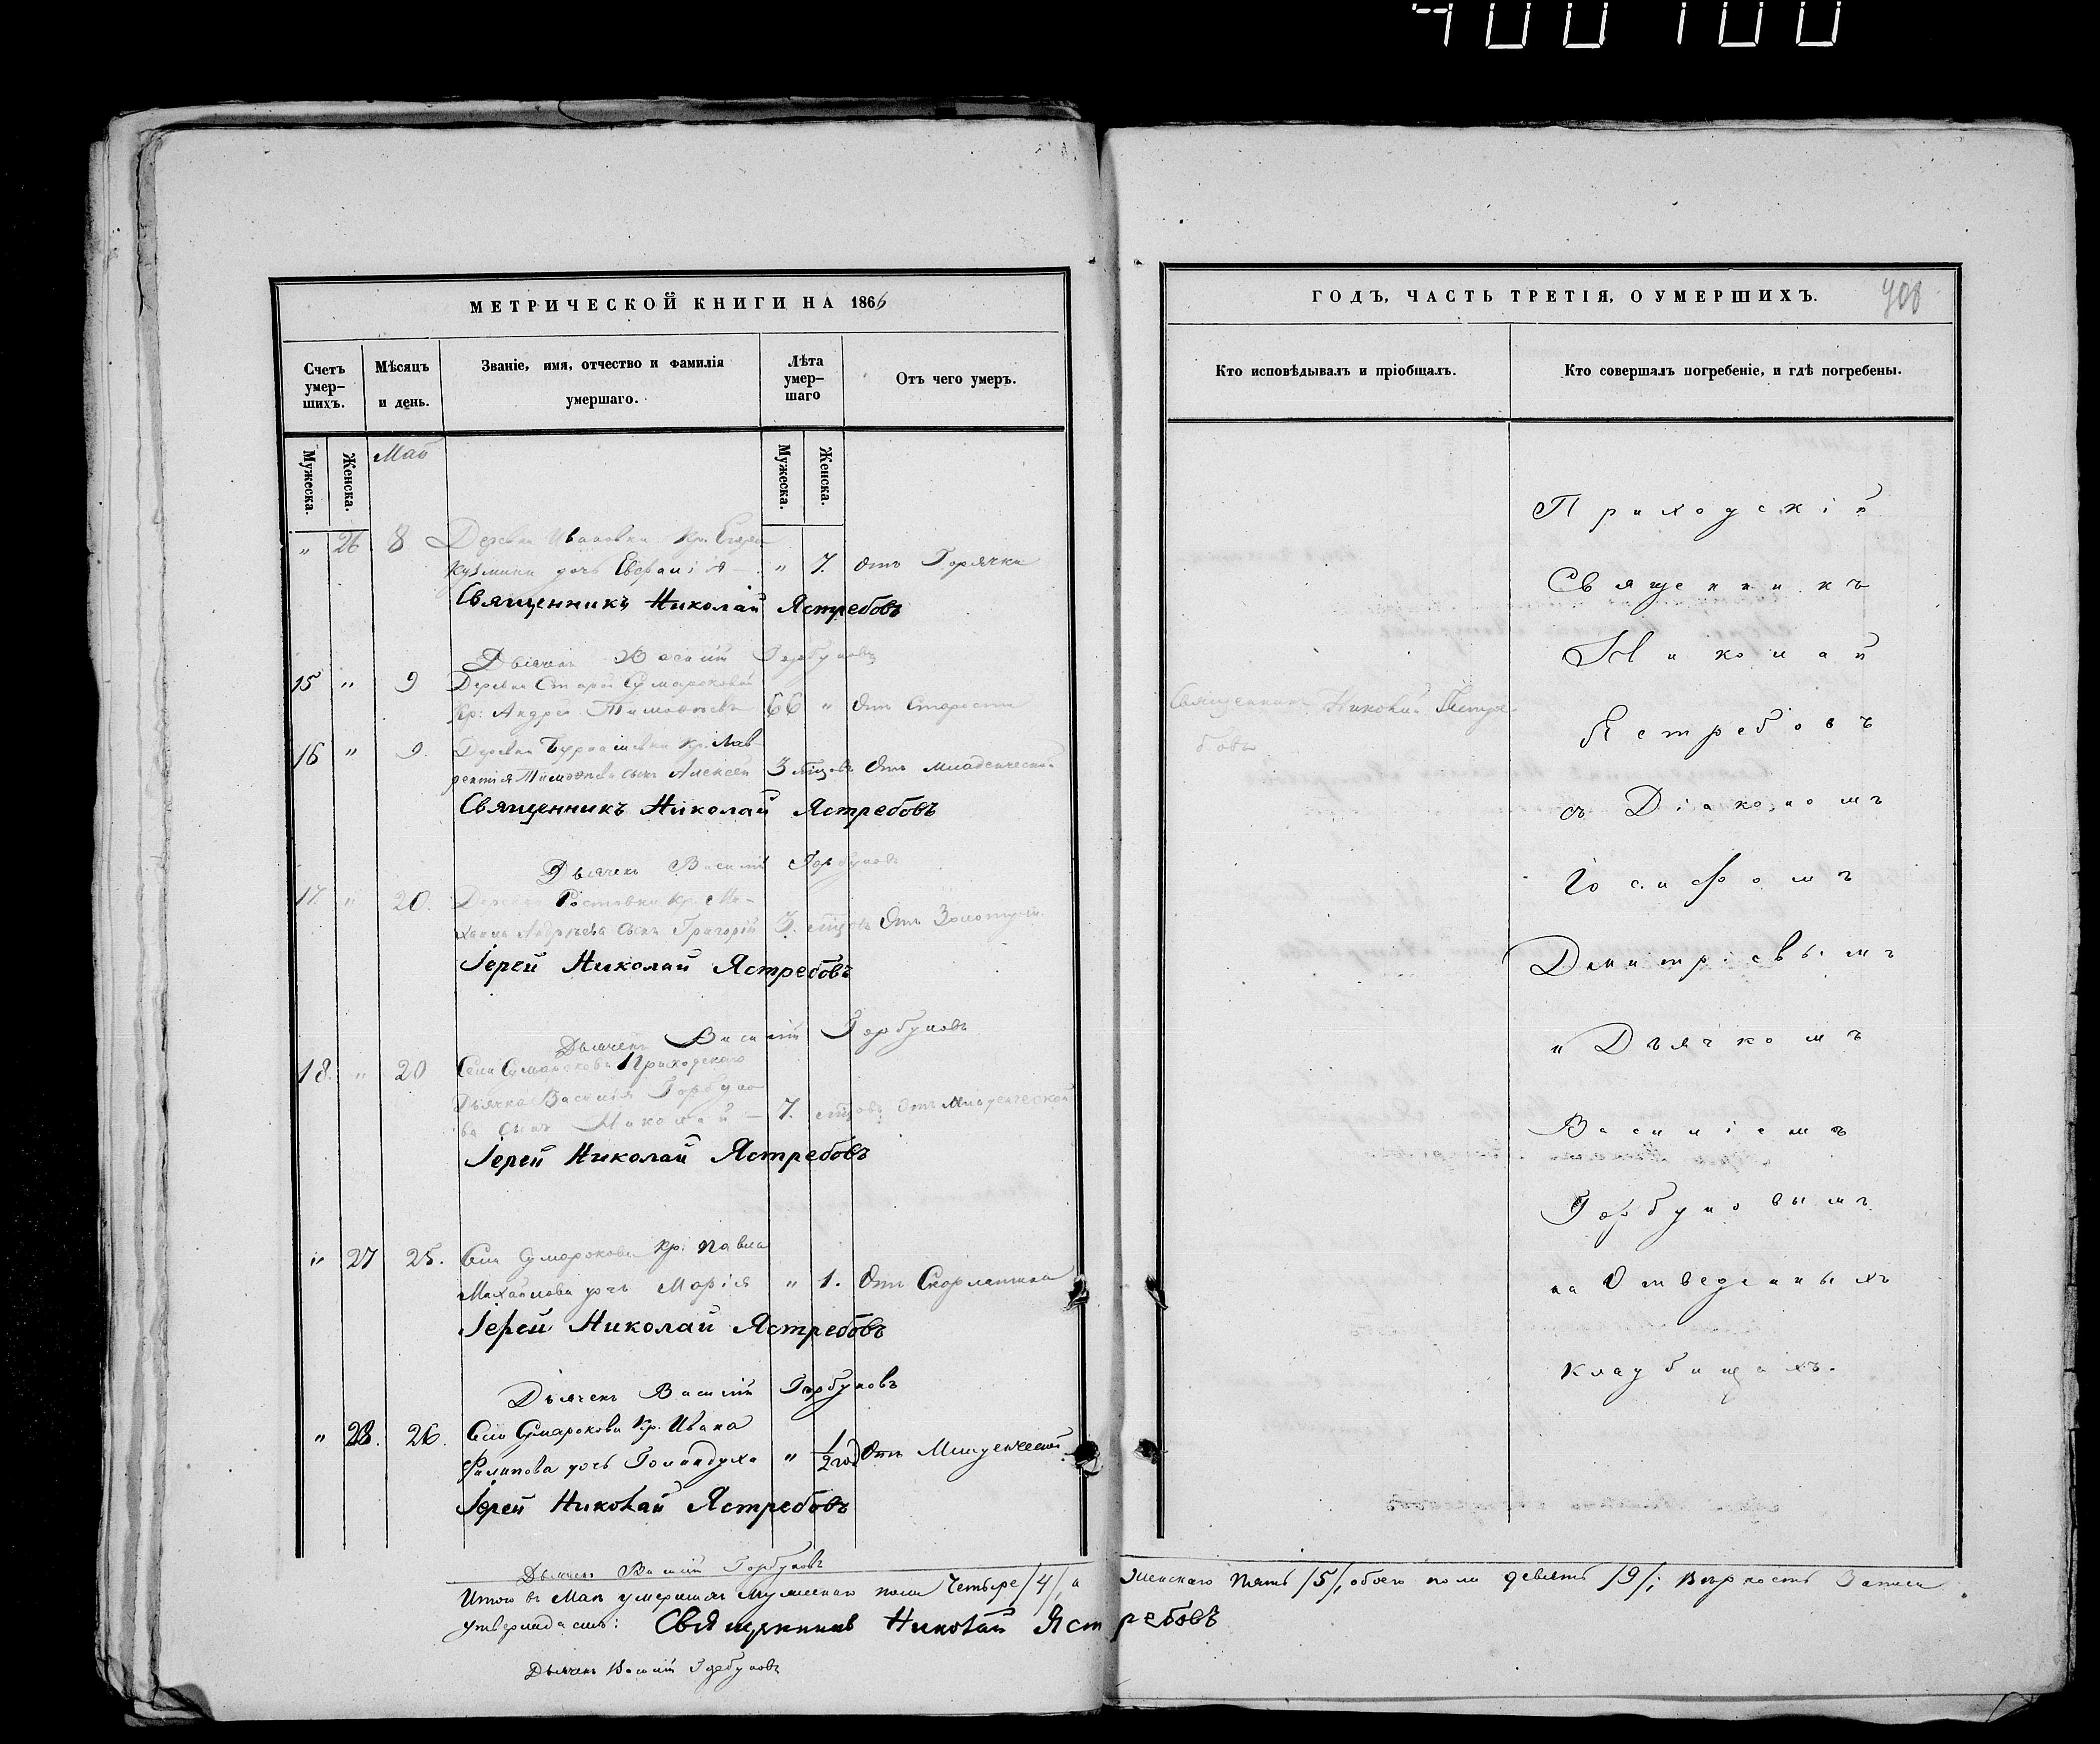 400 100
МЕТРИЧЕСКОЙ КНИГИ НА 1866
ГОДЪ, ЧАСТЬ ТРЕТІЯ, О УМЕРШИХЪ.
408
Счетъ умер-шихъ.
Мѣсяцъ и день.
Званіе, имя, отчество и фамилія умершаго.
Лѣта умер-шаго
Отъ чего умеръ.
Кто исповѣдывалъ и пріобщалъ.
Кто совершалъ погребеніе, и гдѣ погребены.
Мужеска.
Женска.
Май
Мужеска.
Женска.
" 26 8 Деревни Ивановки Кр.
Кузмина дочь Евфимія " 7. Отъ Горячки
Священникъ Николай Ястребовъ
Дьячекъ Василій Горбуновъ
15 " 9 Деревни Старой Сумароковой
Кр: Андрей Тимофѣевъ 66 " Отъ Старости
Священникъ Николай Ястре
бовъ
16 " 9. Деревни Бурнашевки Кр. Лав-
рентія Тимофѣева сынъ Алексей 3 мѣцовъ Отъ младенческой
Священникъ Николай Ястребовъ
Дьячекъ Василій Горбуновъ
17. " 20. Деревни Ростовки Кр. Ми-
хаила Андреева сынъ Григорій 3. мѣцовъ Отъ Золотухи
Іерей Николай Ястребовъ
Дьячекъ Василій Горбуновъ
18. " 20 Села Сумарокова Приходскаго
Дьячка Василія Горбуно
ва сынъ Николай 7. мѣцовъ Отъ Младенческой
Іерей Николай Ястребовъ
" 27 25. Села Сумарокова Кр: Павла
Михайлова дочь Марія " 1. Отъ Скарлатина
Іерей Николай Ястребовъ
Дьячекъ Василій Горбуновъ
" 28. 26. Села Сумарокова Кр. Ивана
Филипова дочь Голиндуха " 1/2 год Отъ Младенческой
Іерей Николай Ястребовъ
Дьячекъ Василій Горбуновъ
Приходскій
Священникъ
Николай
Ястребовъ
съ Діакономъ
Іосифомъ
Димитріевымъ
и Дьячкомъ
Василіемъ
Горбуновымъ
на Отведенныхъ
кладбищахъ.
Итого въ Маѣ умершихъ мужескаго пола Четыре /4/, а Женскаго Пять /5/, обоего пола девять /9/; Вѣрность Записи
утверждаемъ: Священникъ Николай Ястребовъ
Дьячекъ Василій Горбуновъ